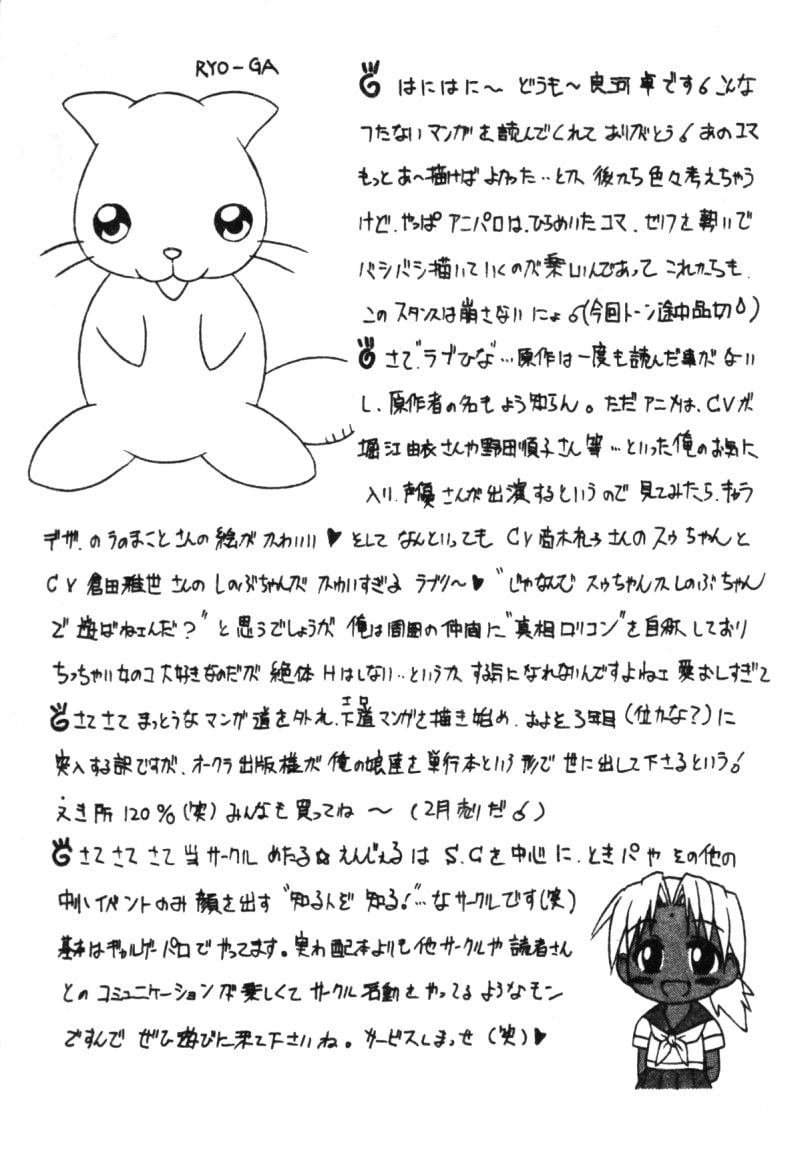 RYO-GA
はにはに〜 どうも〜良河卓です こんな
つたないマンガを読んでくれてありがとう あのコマ
もっとあ〜描けばよかった…とか 後から色々考えちゃう
けど、やっぱアニパロは、ひらめいたコマ、セリフを勢いで
バシバシ描いていくのが楽しいんであって これからも、
このスタンスは崩さないにょ(今回トーン途中品切)
さて、“ラブひな”…原作は一度も読んだ事がない
し、原作者の名もよう知らん。ただアニメは、CVが
堀江由衣さんや野田順子さん等…といった俺のお気に
入り、声優さんが出演するというので見てみたら、キャラ
デザ、のうのまことさんの絵がかわいい♥ そして なんといっても CV高木礼子さんのスゥちゃんと
CV倉田雅世さんのしのぶちゃんがかわいすぎよ ラブリ〜♥ “じゃなんでスゥちゃんかしのぶちゃん
で遊ばねェんだ?”と思うでしょうが 俺は周囲の仲間に“真相ロリコン”を自称しており
ちっちゃい女のコ大好きなのだが 絶体Hはしない…というか する気になれないんですよねェ 愛おしすぎて
さてさて まっとうなマンガ道を外れ、下道マンガを描き始め、およそ3年目(位かな?)に
エロ
突入する訳ですが、オークラ出版様が俺の娘達を単行本という形で世に出して下さるという
えき所120%(笑) みんなも買ってね〜 (2月売りだ)
さてさてさて当サークル めたる☆えんじぇるは S.Cを中心に、ときパや その他の
中小イベントのみ顔を出す“知る人ぞ知る!”…なサークルです(笑)
基本はギャルゲーパロでやってます。実わ配本よりも他サークルや読者さん
とのコミュニケーションが楽しくてサークル活動をやってるようなモン
ですんで ぜひ遊びに来て下さいね。サービスしまっせ(笑)♥